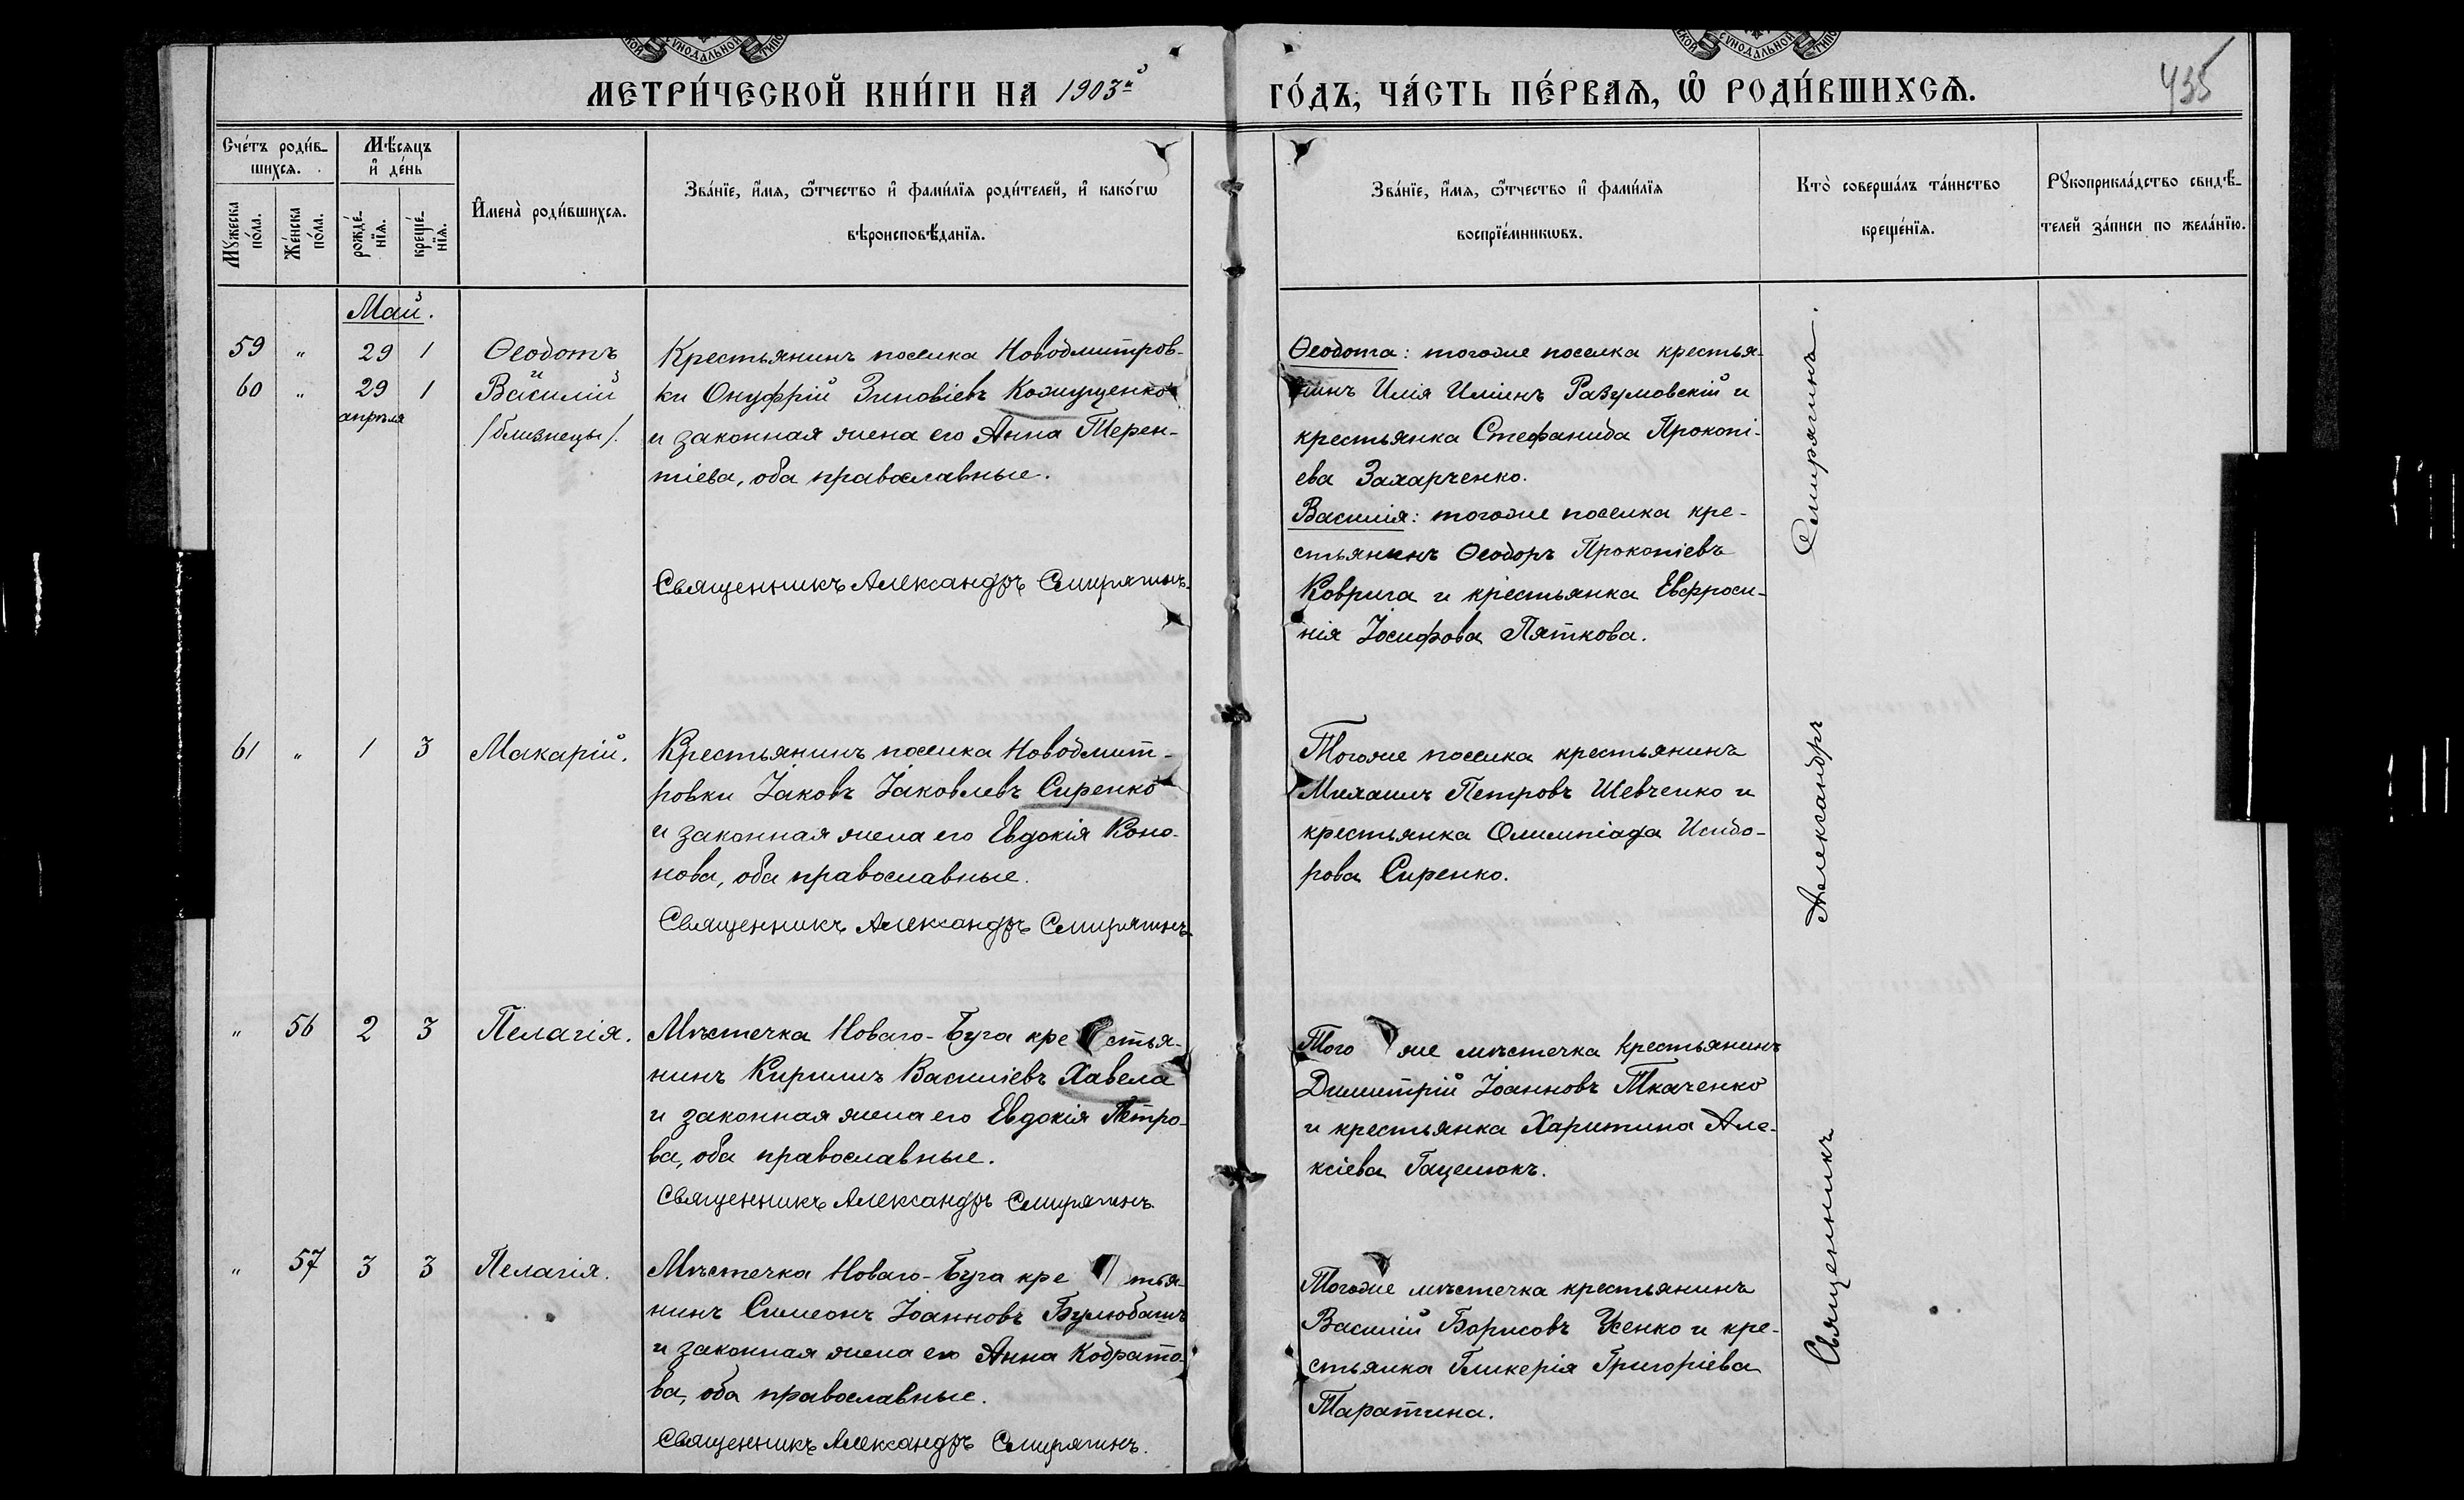 МЕТРИ́ЧЕСКОЙ КНИ́ГИ НА 1903й ГО́ДЪ, ЧА́СТЬ ПЕ́РВАЯ, Ѡ РОДИ́ВШИХСЯ.
435
Сче́тъ роди́в-
шихся.
Мѣ́сяцъ
и де́нь
Му́жеска
по́ла.
Же́нска
по́ла.
рожде́-
нїя.
креще́-
нїя.
Имена̀ роди́вшихся.
Зва́нїе, и́мя, ѻ́тчество и фами́лїя роди́телей, и како́гѡ
вѣроисповѣ́данїя.
Зва́нїе, и́мя, ѻ́тчество и фами́лїя
воспрїе́мникѡвъ.
Кто̀ соверша́лъ та́инство
креще́нїя.
Рукоприкла́дство свидѣ́-
телей за́писи по жела́нїю.
Май.
59 " 29 1 Ѳеодотъ
и
60 " 29 1 Василій
апрѣля
/близнецы/.
Крестьянинъ поселка Новодмитров-
ки Онуфрій Зиновіевъ Кожущенко
и законная жена его Анна Терен-
тіева, оба православные.
Священникъ Александръ Смирягинъ.
Ѳеодота: тогоже поселка крестья-
нинъ Илія Иліинъ Разумовскій и
крестьянка Стефанида Прокопі-
ева Захарченко.
Василія: тогоже поселка кре-
стьянинъ Ѳеодоръ Прокопіевъ
Коврига и крестьянка Евфроси-
нія Іосифова Пяткова.
61 " 1 3 Макарій.
Крестьянинъ поселка Новодмит-
ровки Іаковъ Іаковлевъ Сиренко
и законная жена его Евдокія Коно-
нова, оба православные.
Священникъ Александръ Смирягинъ
Тогоже поселка крестьянинъ
Михаилъ Петровъ Шевченко и
крестьянка Олимпіада Исидо-
рова Сиренко.
" 56 2 3 Пелагія.
Мѣстечка Новаго-Буга крестья-
нинъ Кириллъ Василіевъ Хавела
и законная жена его Евдокія Петро-
ва, оба православные.
Священникъ Александръ Смирягинъ.
Того же мѣстечка крестьянинъ
Димитрій Іоанновъ Ткаченко
и крестьянка Харитина Але-
ксіева Гацелюкъ.
" 57 3 3 Пелагія.
Мѣстечка Новаго-Буга кре тья-
нинъ Симеонъ Іоанновъ Булюбашъ
и законная жена его Анна Кодрато-
ва, оба православные.
Священникъ Александръ Смирягинъ.
Тогоже мѣстечка крестьянинъ
Василій Борисовъ Усенко и кре-
стьянка Гликерія Григоріева
Таратина.
Священникъ Александръ Смирягинъ.